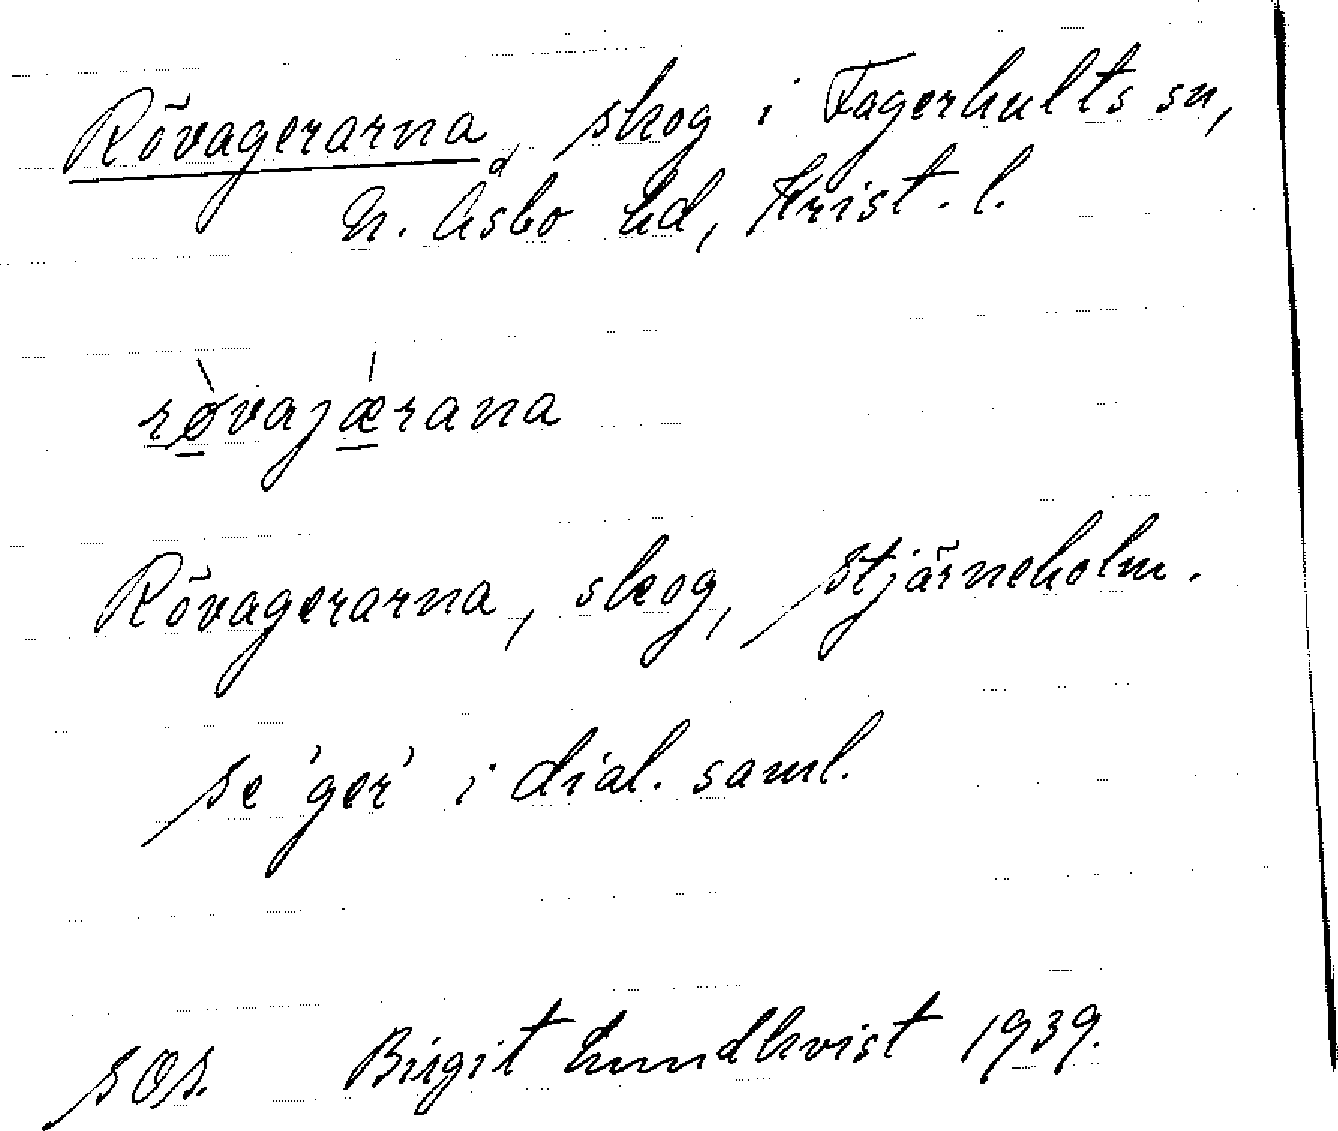 Rövagerarna skog i Fagerhults sn,
N. Åsbo hd, Krist. l.
rø̀vajǽrana
Rövagerarna, skog, Stjärneholm.
se 'ger' i dial. saml.
SOS. Birgit Lundkvist 1939.